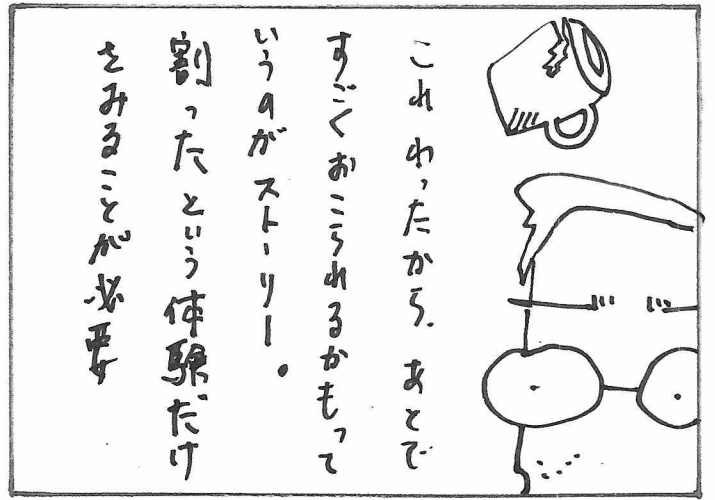 これわったから、あとで
すごくおこられるかもって
いうのがストーリー。
割ったという体験だけ
をみることが必要